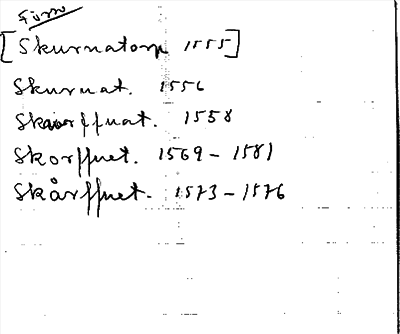 Förr
[Skurnatorp 1555]
Skurnat. 1556
Skaorffnat. 1558
Skorffnet. 1569 – 1581
Skårffnet. 1573 – 1576